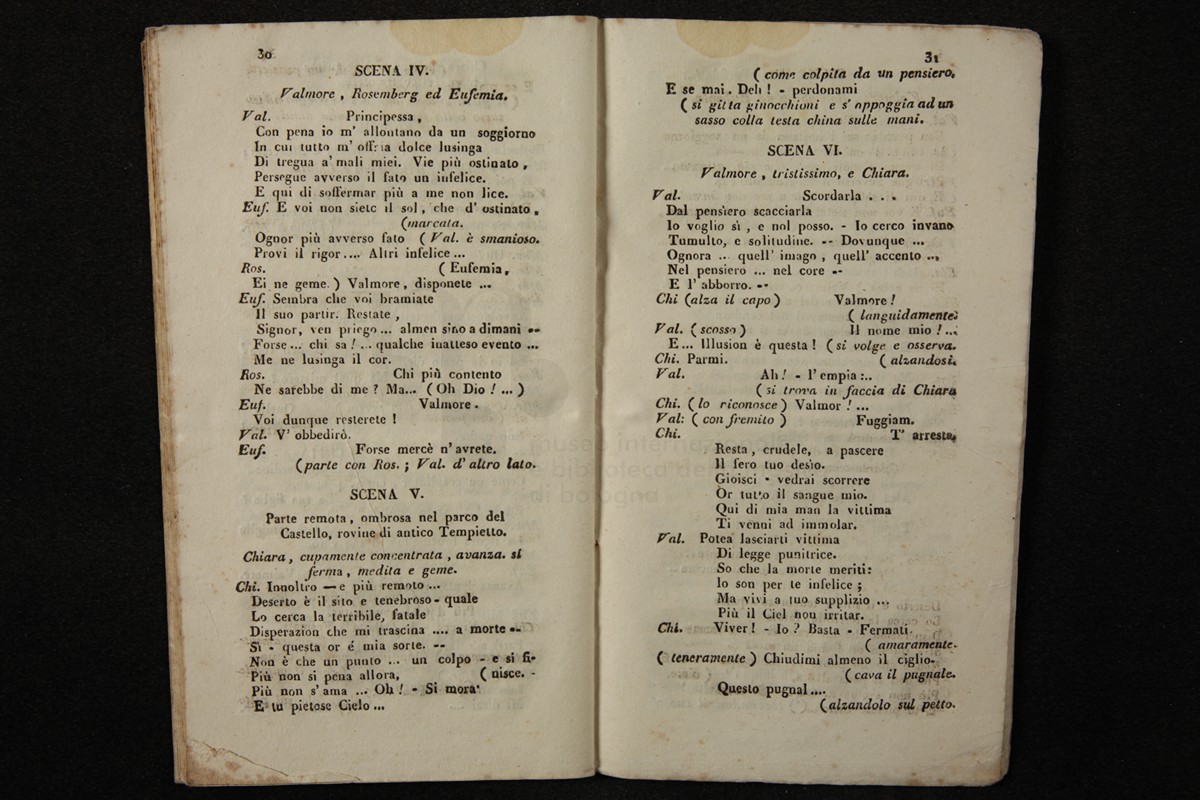 30
SCENA IV.
Valmore , Rosemberg ed Eufemia.
Val. Principessa ,
Con pena io m' allontano da un soggiorno
In cui tutto m' offria dolce lusinga
Di tregua a' mali miei. Vie più ostinato ,
Persegue avverso il fato un infelice.
E qui di soffermar più a me non lice.
Euf. E voi non siete il sol , che d' ostinato ,
(marcata.
Ognor più avverso fato ( Val. è smanioso.
Provi il rigor .... Altri infelice ...
Ros. ( Eufemia,
Ei ne geme. ) Valmore , disponete ...
Euf. Sembra che voi bramiate
Il suo partir. Restate ,
Signor, ven priego ... almen sino a dimani --
Forse ... chi sa ! ... qualche inatteso evento ...
Me ne lusinga il cor.
Ros. Chi più contento
Ne sarebbe di me ? Ma... ( Oh Dio ! ... )
Euf. Valmore .
Voi dunque resterete !
Val. V' obbedirò.
Euf. Forse mercè n' avrete.
(parte con Ros. ; Val. d' altro lato.
SCENA V.
Parte remota , ombrosa nel parco del
Castello, rovine di antico Tempietto.
Chiara , cupamente concentrata , avanza. si
ferma , medita e geme.
Chi. Innoltro — e più remoto ...
Deserto è il sito e tenebroso - quale
Lo cerca la terribile, fatale
Disperazion che mi trascina .... a morte --
Sì - questa or é mia sorte. --
Non è che un punto ... un colpo - e si fi-
Più non si pena allora, ( nisce. -
Più non s' ama ... Oh ! - Si mora
E tu pietose Cielo ...
31
( come colpita da un pensiero,
E se mai . Deh ! - perdonami
( si gitta ginocchioni e s' appoggia ad un
sasso colla testa china sulle mani.
SCENA VI.
Valmore , tristissimo, e Chiara.
Val. Scordarla . . .
Dal pensiero scacciarla
Io voglio sì , e nol posso. - Io cerco invano
Tumulto, e solitudine. -- Dovunque ...
Ognora ... quell' imago , quell' accento ...
Nel pensiero ... nel core --
E l' abborro. --
Chi (alza il capo ) Valmore !
( languidamente:
Val. ( scosso ) Il nome mio ! ...
E... Illusion è questa ! ( si volge e osserva.
Chi. Parmi. ( alzandosi.
Val. Ah ! - l' empia :..
( si trova in faccia di Chiara
Chi. ( lo riconosce ) Valmor ! ...
Val: ( con fremito ) Fuggiam.
Chi. T' arresta,
Resta , crudele, a pascere
Il fero tuo desio.
Gioisci - vedrai scorrere
Or tutto il sangue mio.
Qui di mia man la vittima
Ti venni ad immolar.
Val. Potea lasciarti vittima
Di legge punitrice.
So che la morte meriti:
Io son per te infelice ;
Ma vivi a tuo supplizio ...
Più il Ciel non irritar.
Chi. Viver ! - Io ? Basta - Fermati.
( amaramente.
( teneramente ) Chiudimi almeno il ciglio.
( cava il pugnale.
Questo pugnal ....
(alzandolo sul petto.